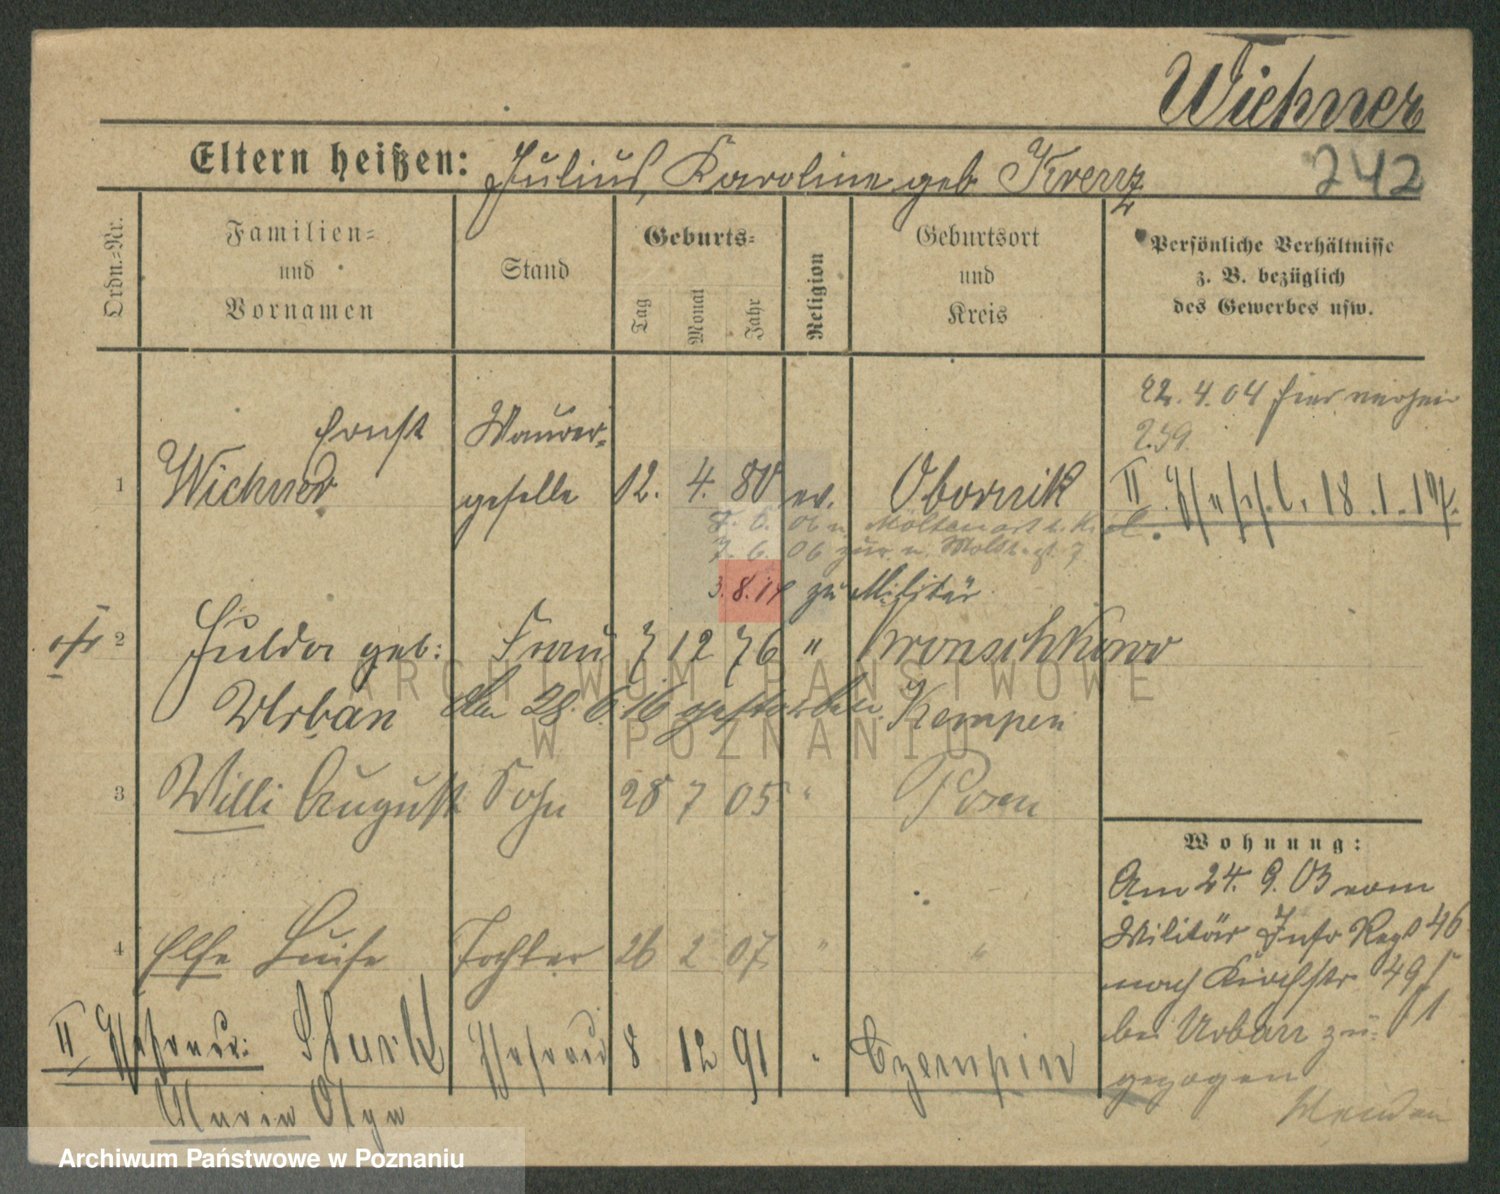 Wichner
242
Eltern heißen: Julius, Karoline geb Krenz
Ordn.-Nr.
Familien= und Vornamen
Stand
Geburts=
Tag
Monat
Jahr
Religion
Geburtsort und Kreis
Persönliche Verhältnisse
z. B. bezüglich
des Gewerbes usw.
22.4.04 hier
Ernst Maurer-
1 Wichner geselle 12. 4. 80 ev. Obornik
II. 18.1.17.
7. 6. 06
3.8.14 zu Militär
2 Hulda geb: Frau 7 12 76 " Wronschkowo
Urban den 28.6.16 gestorben Kempen
3 Willi August Sohn 28 7 05 " Posen
Wohnung:
Am 24.9.03 vom
Militär Inf Regt 46
nach Kirchstr 49
bei Urban zu-
gezogen
4 Else Luise Tochter 26 2 07 " "
II Ehefrau: Sturk Ehefrau 8 12 91 " Czempin
Maria Olga
ARCHIWUM PAŃSTWOWE
W POZNANIU
Archiwum Państwowe w Poznaniu